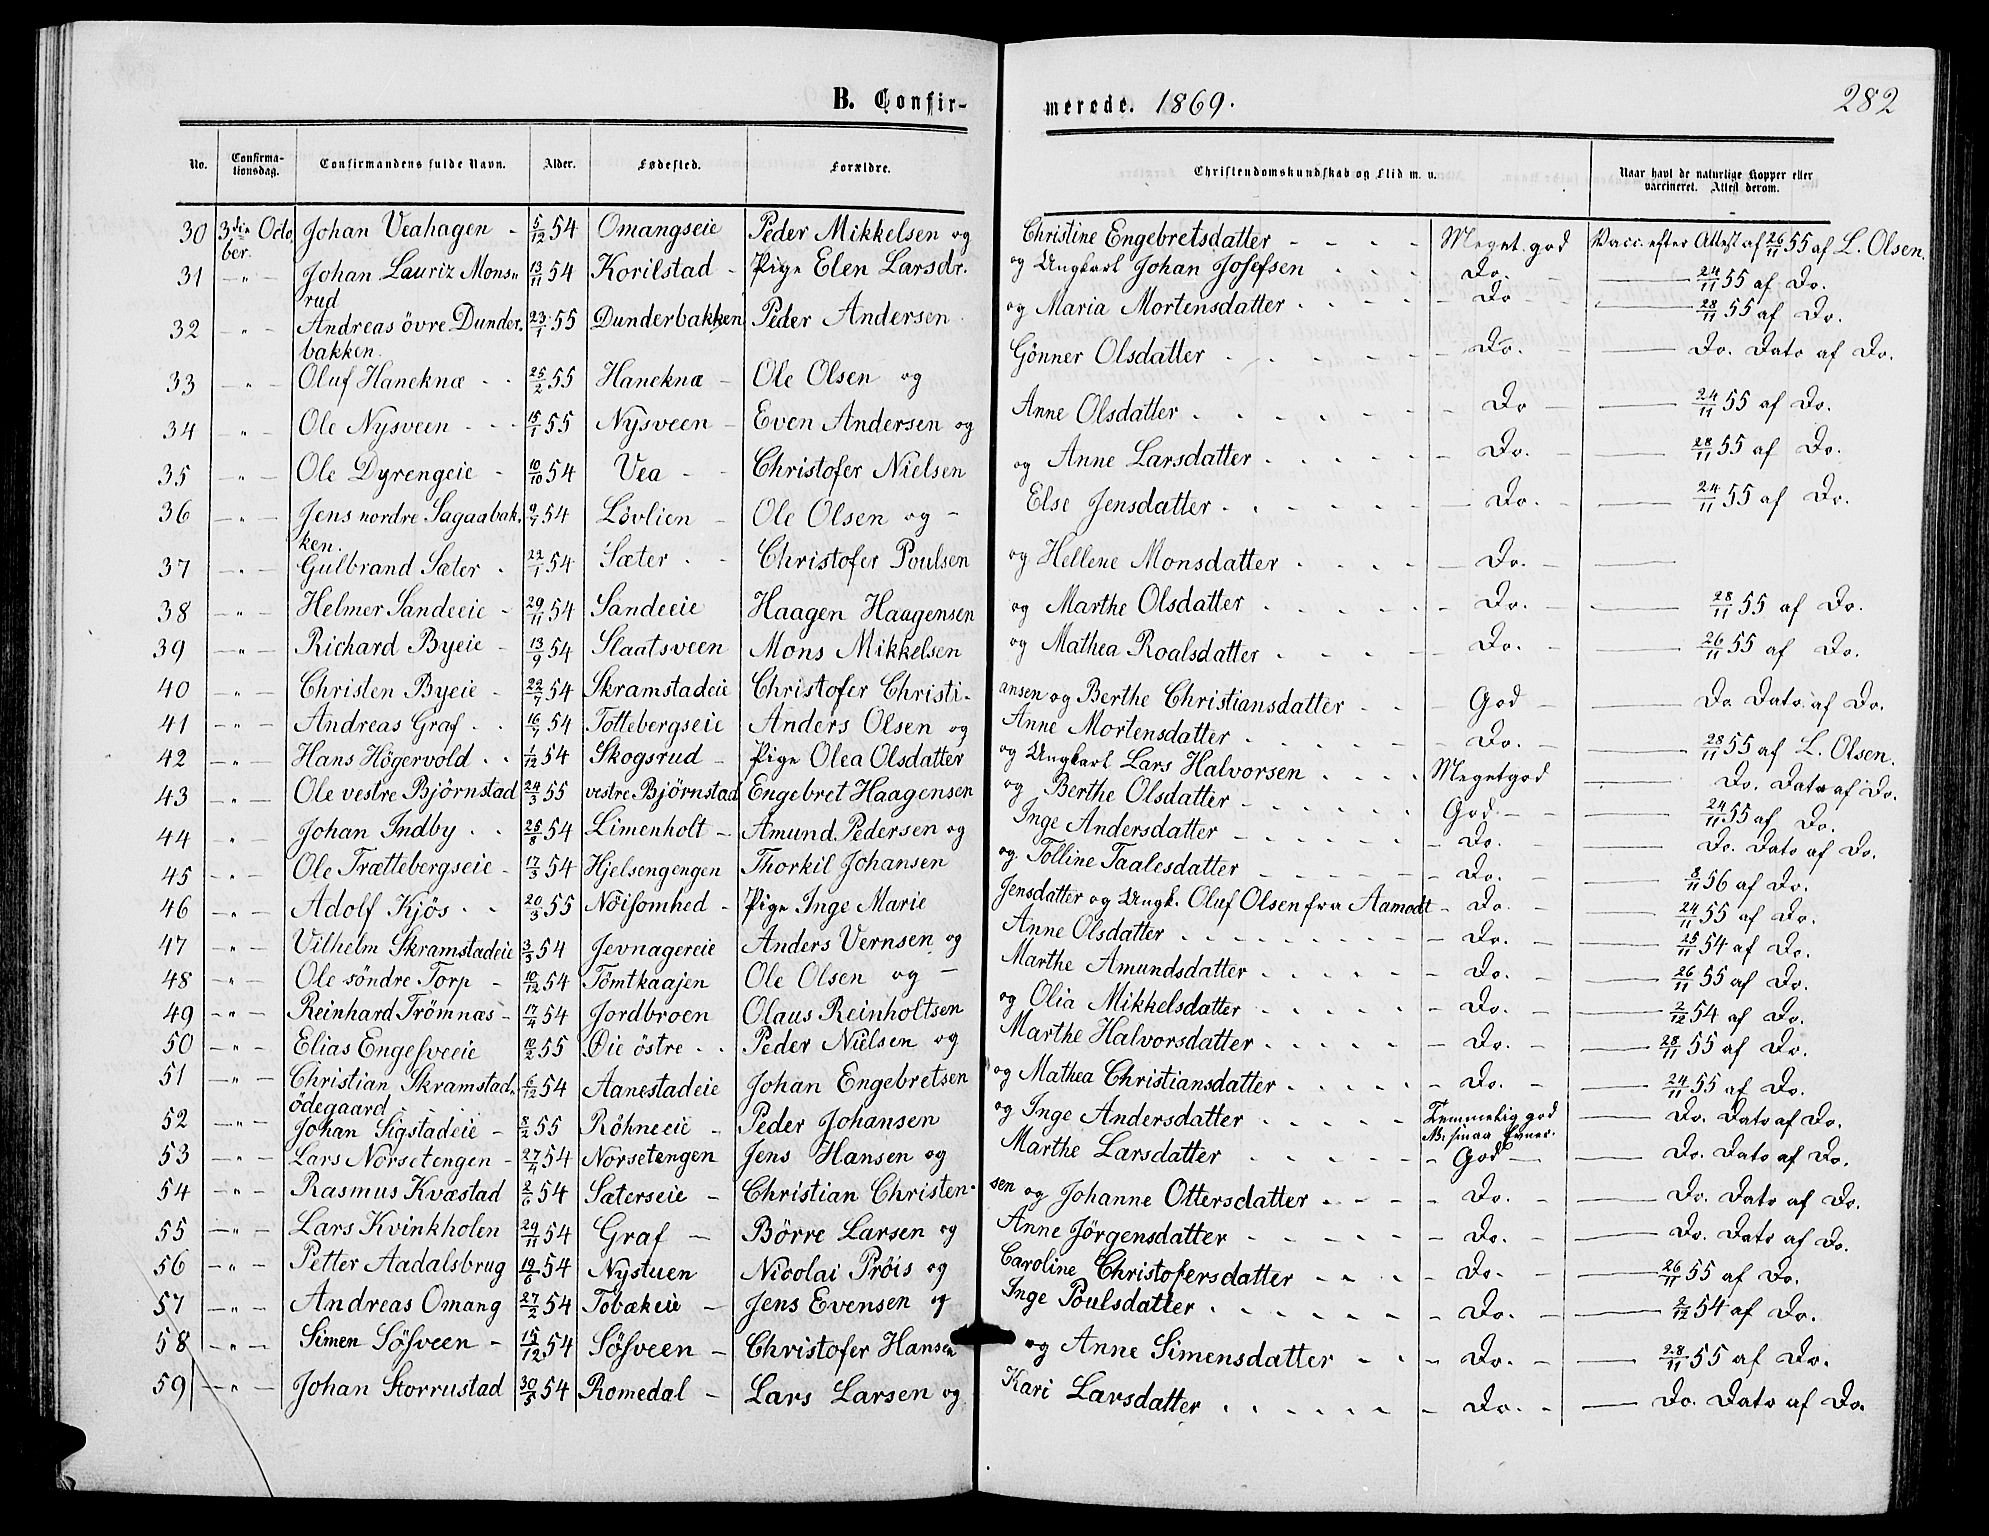 B. Confir-
merede. 1869.
282
No. Confirma-tionsdag. Confirmandens fulde Navn. Alder. Fødested. Forældre. Christendomskundskab og Flid m. v. Naar havt de naturlige Kopper eller vaccineret. Attest derom.
30 3die Octo ber. Johan Veahagen - 5/12 54 Omangseie Peder Mikkelsen og Christine Engebretsdatter - - - - Meget god Vacc. efter Attest af 26/11 55 af L. Olsen.
31 - " - Johan Lauriz Mons" rud 13/11 54 Korilstad - Pige Elen Larsdr. og Ungkarl Johan Josefsen - - - Do. - 24/11 55 af Do.
32 - " - Andreas övre Dunder. bakken. 23/1 55 Dunderbakken Peder Andersen og Maria Mortensdatter - - - - Do - 28/11 55 af Do.
33 - " - Oluf Haneknæ - - 25/2 55 Haneknæ - Ole Olsen og Gönner Olsdatter - - - - - Do. - Do. Dato af Do.
34 - " - Ole Nysveen - - - 15/1 55 Nysveen - Even Andersen og Anne Olsdatter - - - - - Do - 24/11 55 af Do.
35 - " - Ole Dyrengeie - 10/10 54 Vea - - Christofer Nielsen og Anne Larsdatter - - - - - Do. - 28/11 55 af Do.
36 - " - Jens nordre Sagaabak. ken. 9/7 54 Lövlien - Ole Olsen og - Else Jensdatter - - - - - Do. - 24/11 55 af Do.
37 - " - Gulbrand Sæter - 22/1 54 Sæter - - Christofer Poulsen og Hellene Monsdatter - - - - Do. -
38 - " - Helmer Sandeeie - 29/11 54 Sandeeie Haagen Haagensen og Marthe Olsdatter - - - - - Do. - 28/11 55 af Do.
39 - " - Richard Byeie - 13/9 54 Slaatsveen Mons Mikkelsen og Mathea Roalsdatter - - - - Do. - 26/11 55 af Do.
40 - " - Christen Byeie - 22/7 54 Skramstadeie Christofer Christi- ansen og Berthe Christiansdatter - - - God - Do. Dato af Do.
41 - " - Andreas Graf - - 16/7 54 Tottebergseie Anders Olsen og Anne Mortensdatter - - - - - Do. - 28/11 55 af L. Olsen.
42 - " - Hans Högervold - - 1/12 54 Skogsrud - Pige Olea Olsdatter og Ungkarl Lars Halvorsen - - - - Megetgod Do. Dato af Do.
43 - " - Ole vestre Björnstad 24/3 55 vestre Björnstad Engebret Haagensen og Berthe Olsdatter - - - - - God. - - 24/11 55 af Do.
44 - " - Johan Indby - - 25/8 54 Limenholt - Amund. Pedersen og Inge Andersdatter - - - - - Do. - Do. Dato af Do.
45 - " - Ole Trættebergseie - 17/3 54 Hjelsengengen Thorkil Johansen og Tolline Taalesdatter - - - - - Do. - 8/11 56 af Do.
46 - " - Adolf Kjös - - 20/3 55 Nöisomhed - Pige Inge Marie Jensdatter og Ungk. Oluf Olsen fra Aamodt - Do. - 24/11 55 af Do.
47 - " - Vilhelm Skramstadeie 3/3 54 Jevnagereie Anders Vernsen og Anne Olsdatter - - - - - Do. - 25/11 54 af Do.
48 - " - Ole söndre Torp - 10/12 54 Tömtkaajen Ole Olsen og - Marthe Amundsdatter - - - - - Do. - 26/11 55 af Do.
49 - " - Reinhard Trömnæs - 17/4 54 Jordbroen Olaus Reinholtsen og Olia Mikkelsdatter - - - - - Do. - 2/12 54 af Do.
50 - " - Elias Engesveeie 10/2 55 Øie östre - - Peder Nielsen og Marthe Halvorsdatter - - - - - Do. - 28/11 55 af Do.
51 - " - Christian Skramstad„ ödegaard 6/12 54 Aanestadeie Johan Engebretsen og Mathea Christiansdatter - - - - - Do. - 24/11 55 af Do.
52 - " - Johan Sigstadeie - 8/2 55 Röhneeie - Peder Johansen og Inge Andersdatter - - - - - Temmelig god M. smaa Evner. Do. Dato af Do.
53 - " - Lars Norsetengen - 27/4 54 Norsetengen Jens Hansen og Marthe Larsdatter - - - - - God - Do. Dato af Do.
54 - " - Rasmus Kvæstad 2/6 54 Sæterseie - Christian Christen- sen og Johanne Ottersdatter - - - - Do. - Do. Dato af Do.
55 - " - Lars Kvinkholen 29/11 54 Graf - Börre Larsen og Anne Jörgensdatter - - - - - Do. - Do. Dato af Do.
56 - " - Petter Aadalsbrug 19/6 54 Nystuen Nicolai Pröis og Caroline Christofersdatter - - - - Do. - 26/11 55 af Do.
57 - " - Andreas Omang 27/2 54 Tobækeie - Jens Evensen og Inge Poulsdatter - - - - - - Do. - 2/12 54 af Do.
58 - " - Simen Sösveen - 15/12 54 Sösveen - Christofer Hansen og Anne Simensdatter - - - Do. - 28/11 55 af Do.
59 - " - Johan Storrustad 30/5 54 Romedal - Lars Larsen og Kari Larsdatter - - - - - - Do. - Do. Dato af Do.